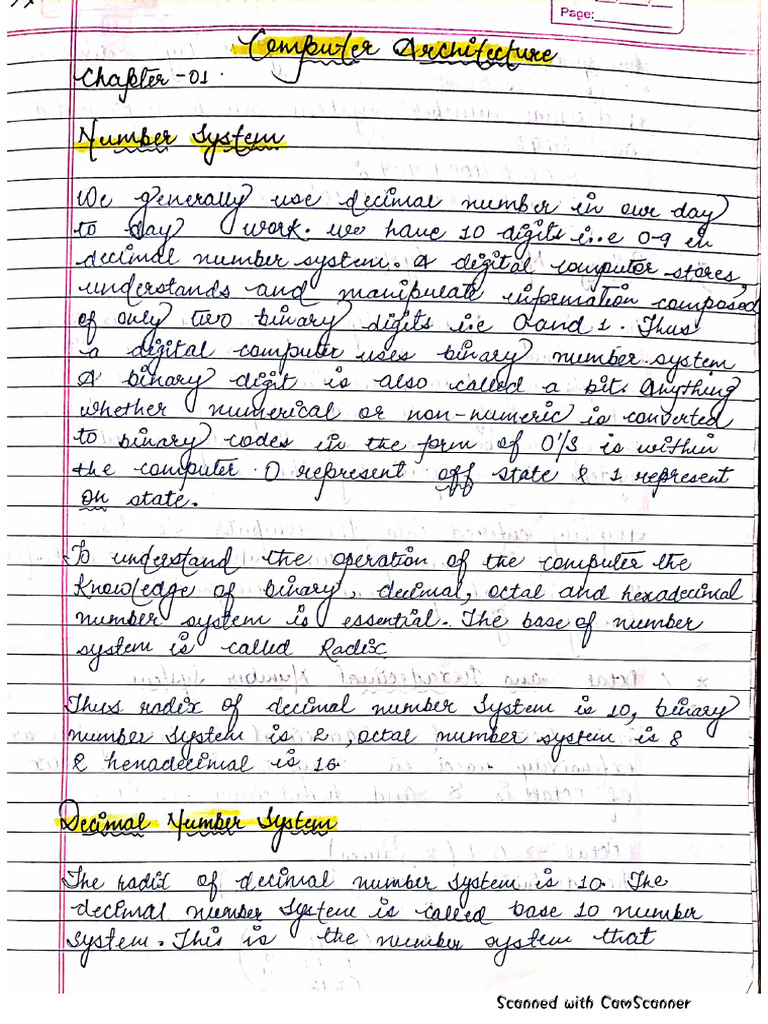 Page:
Computer Architecture
Chapter -01.
Number System
We generally use decimal number in our day
to day work. we have 10 digits i.e 0-9 in
decimal number system. A digital computer stores,
understands and manipulate information composed
of only two binary digits i.e 0 and 1. Thus
a digital computer uses binary number system
A binary digit is also called a bit. Anything
whether numerical or non-numeric is converted
to binary codes in the form of 0's is within
the computer 0 represent off state & 1 represent
on state.
To understand the operation of the computer the
knowledge of binary, decimal, octal and hexadecimal
number system is essential. The base of number
system is called Radix
Thus radix of decimal number system is 10, binary
number system is 2, octal number system is 8
& henadecimal is 16.
Decimal Number System
The radix of decimal number system is 10. The
decimal number system is called base 10 number
system. This is the number system that
Scanned with CamScanner